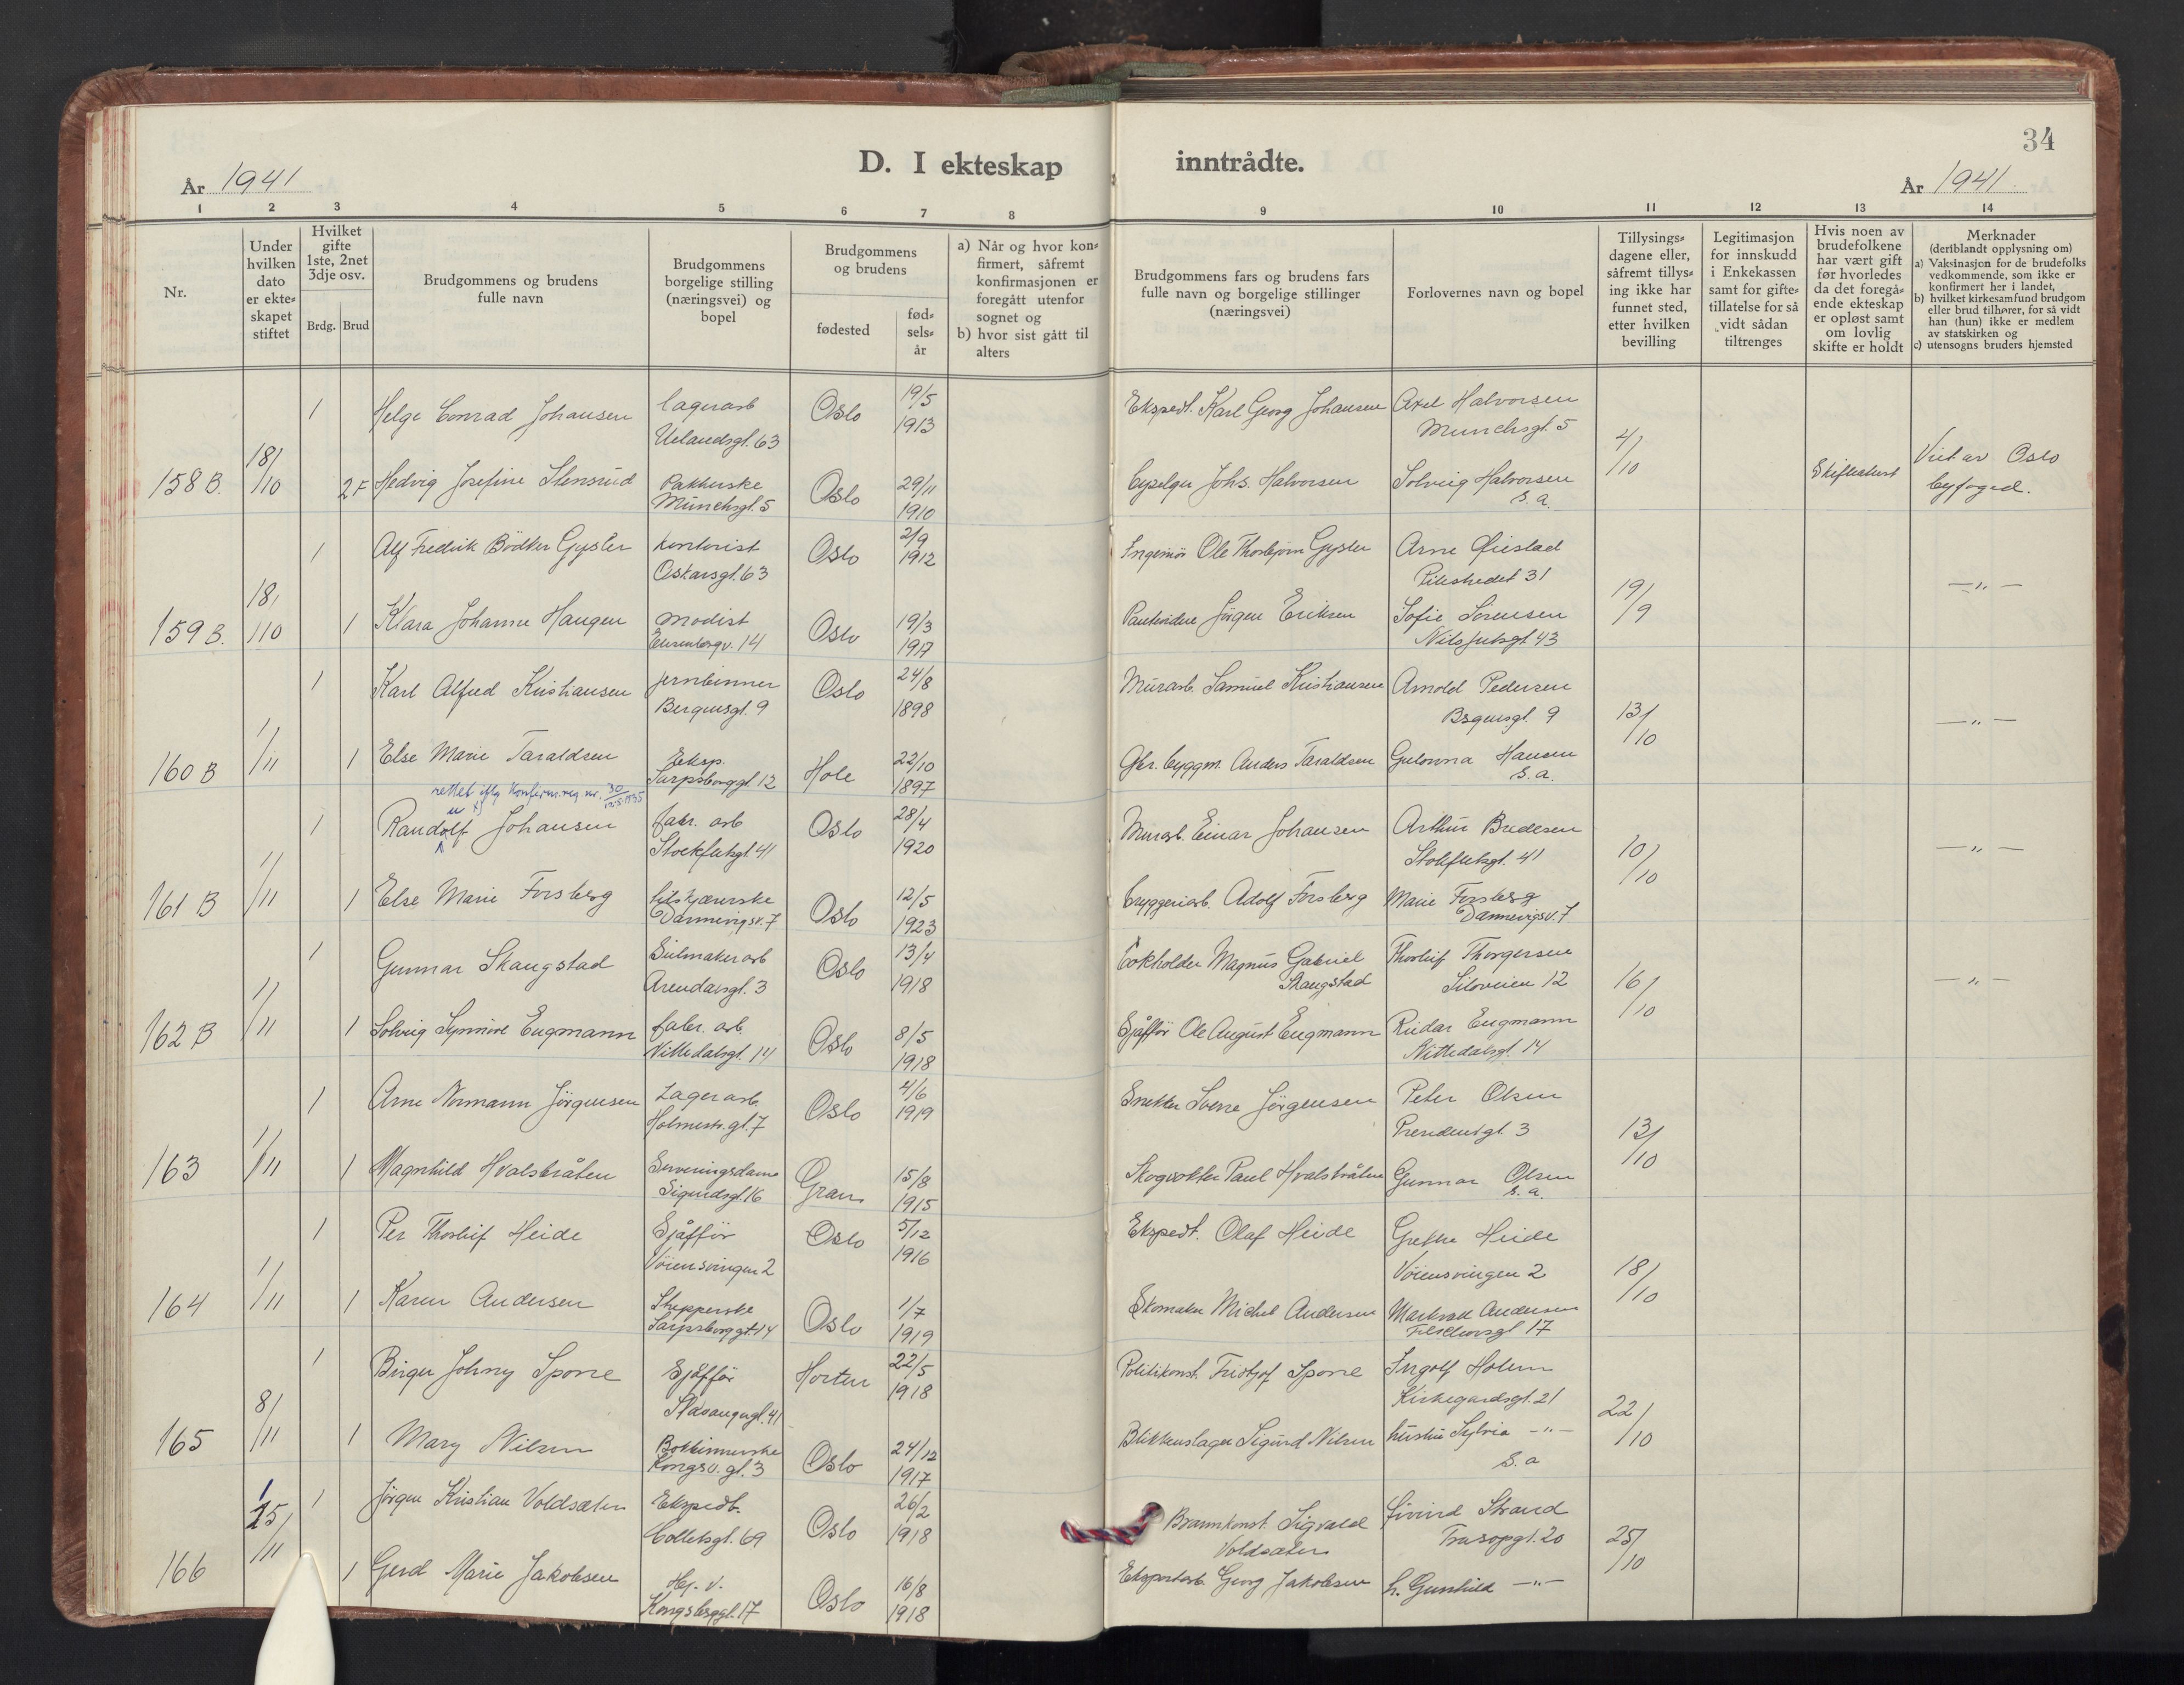 34
D. I ekteskap inntrådte.
År 1941 År 1941
1 2 3 4 5 6 7 8 9 10 11 12 13 14
Nr.
Under hvilken dato er ekte= skapet stiftet
Hvilket gifte 1ste, 2net 3dje osv.
Brdg. Brud
Brudgommens og brudens fulle navn
Brudgommens borgelige stilling (næringsvei) og bopel
Brudgommens og brudens
fødested
fød= sels= år
a) Når og hvor kon= firmert, såfremt konfirmasjonen er foregått utenfor sognet og
b) hvor sist gått til alters
Brudgommens fars og brudens fars fulle navn og borgelige stillinger (næringsvei)
Forlovernes navn og bopel
Tillysings= dagene eller, såfremt tillys= ing ikke har funnet sted, etter hvilken bevilling
Legitimasjon for innskudd i Enkekassen samt for gifte= tillatelse for så vidt sådan tiltrenges
Hvis noen av brudefolkene har vært gift før hvorledes da det foregå= ende ekteskap er opløst samt om lovlig skifte er holdt
Merknader
(deriblandt opplysning om)
a) Vaksinasjon for de brudefolks vedkommende, som ikke er konfirmert her i landet,
b) hvilket kirkesamfund brudgom eller brud tilhører, for så vidt han (hun) ikke er medlem av statskirken og
c) utensogns bruders hjemsted
1 Helge Conrad Johansen lagerarb Oslo 19/5 Ekspedt. Karl Georg Johansen Axel Halvorsen
Uelandsgt. 63 1913 Munchsgt. 5 4/10
158 B. 18/10 2 F Hedvig Josefine Stensrud Pakkerske Oslo 29/11 Johs. Halvorsen Solveig Halvorsen Skifteattest Viet av Oslo
Munchsgt. 5 1910 s. a. byfoged.
1 Alf Fredrik Bödker Gysler kontorist Oslo 2/9 Ingeniör Ole Thorbjørn Gysler Arne Øiestad
Oskarsgt. 63 1912 Pilestredet 31 — „ —
159 B. 18/10 1 Klara Johanne Haugen modist Oslo 19/3 Jörgen Eriksen Sofie Sörensen 19/9
14 1917 Nils Juelsgt. 43
1 Karl Alfred Kristiansen jernbinner Oslo 24/8 Murarb. Samuel Kristiansen Arnold Pedersen
Bergensgt. 9 1898 Bsgensgt. 9 13/10 — „ —
160 B 1/11 1 Else Marie Taraldsen Eksp. Hole 22/10 Gbr. byggm. Anders Taraldsen Gulowna Hansen
Sarpsborggt. 12 1897 s. a.
rettet iflg Konferm.reg. nr. 30
1 Randolf Johansen fabr. arb Oslo 28/4 Murarb. Einar Johansen Arthur Bredesen
Stockfletsgt. 41 1920 Stokfletsgt. 41 10/10 — „ —
161 B 1/11 1 Else Marie Forsberg Oslo 12/5 bryggeriarb. Adolf Forsberg Marie Forsberg
Dannevigsv. 7 1923 Dannevigsv. 7
1 Gunnar Skaugstad Seilmakerarb Oslo 13/4 Bokholder Magnus Gabriel Skaugstad Thorleif Thorgersen
Arendalsgt. 3 1918 Siloveien 12 16/10 — „ —
162 B 1/11 1 Solveig Synnöve Eugmann fabr. arb. Oslo 8/5 Sjåfför Ole August Eugmann Reidar Eugmann
Nittedalsgt. 14 1918 Nittedalsgt. 14
1 Arne Normann Jörgensen Lagerarb Oslo 4/6 Snekker Sverre Jörgensen Peter Olsen
Holmestr. gt. 7 1919 3 13/10
163 1/11 1 Magnhild Hvalsbråten Serveringsdame Gran 15/8 Skogvokter Paul Hvalsbråten Gunnar Olsen
Sigurdsgt. 16 1915 s. a.
1 Per Thorleif Heide Sjåfför Oslo 5/12 Ekspedt. Olaf Heide Grethe Heide
Vöiensvingen 2 1916 Vöiensvingen 2 18/10
164 1/11 1 Karen Andersen Stepperske Oslo 1/7 Skomaker Michel Andersen Andersen
Sarpsborggt. 14 1919 17
1 Birger Johny Sporre Sjåffør Horten 22/5 Politikonst. Fridtjof Sporre Ingolf Holem
Stavangergt. 41 1918 Kirkegardsgt. 21 22/10
165 8/11 1 Mary Nilsen Bokbinnerske Oslo 24/12 Blikkenslager Sigurd Nilsen hustru Sylvia — „ —
Kongsv. gt. 3 1917 s. a
15/11 1 Jörgen Kristian Voldsæter Ekspedt. Oslo 26/2 Brannkonst. Sigvald Voldsæter Eivind Strand
Colletsgt. 69 1918 Trasopgt. 20 25/10
166 1 Gerd Marie Jakobsen Hj. v. Oslo 16/8 Georg Jakobsen h. Gunhild — „ —
Kongsberggt. 17 1918